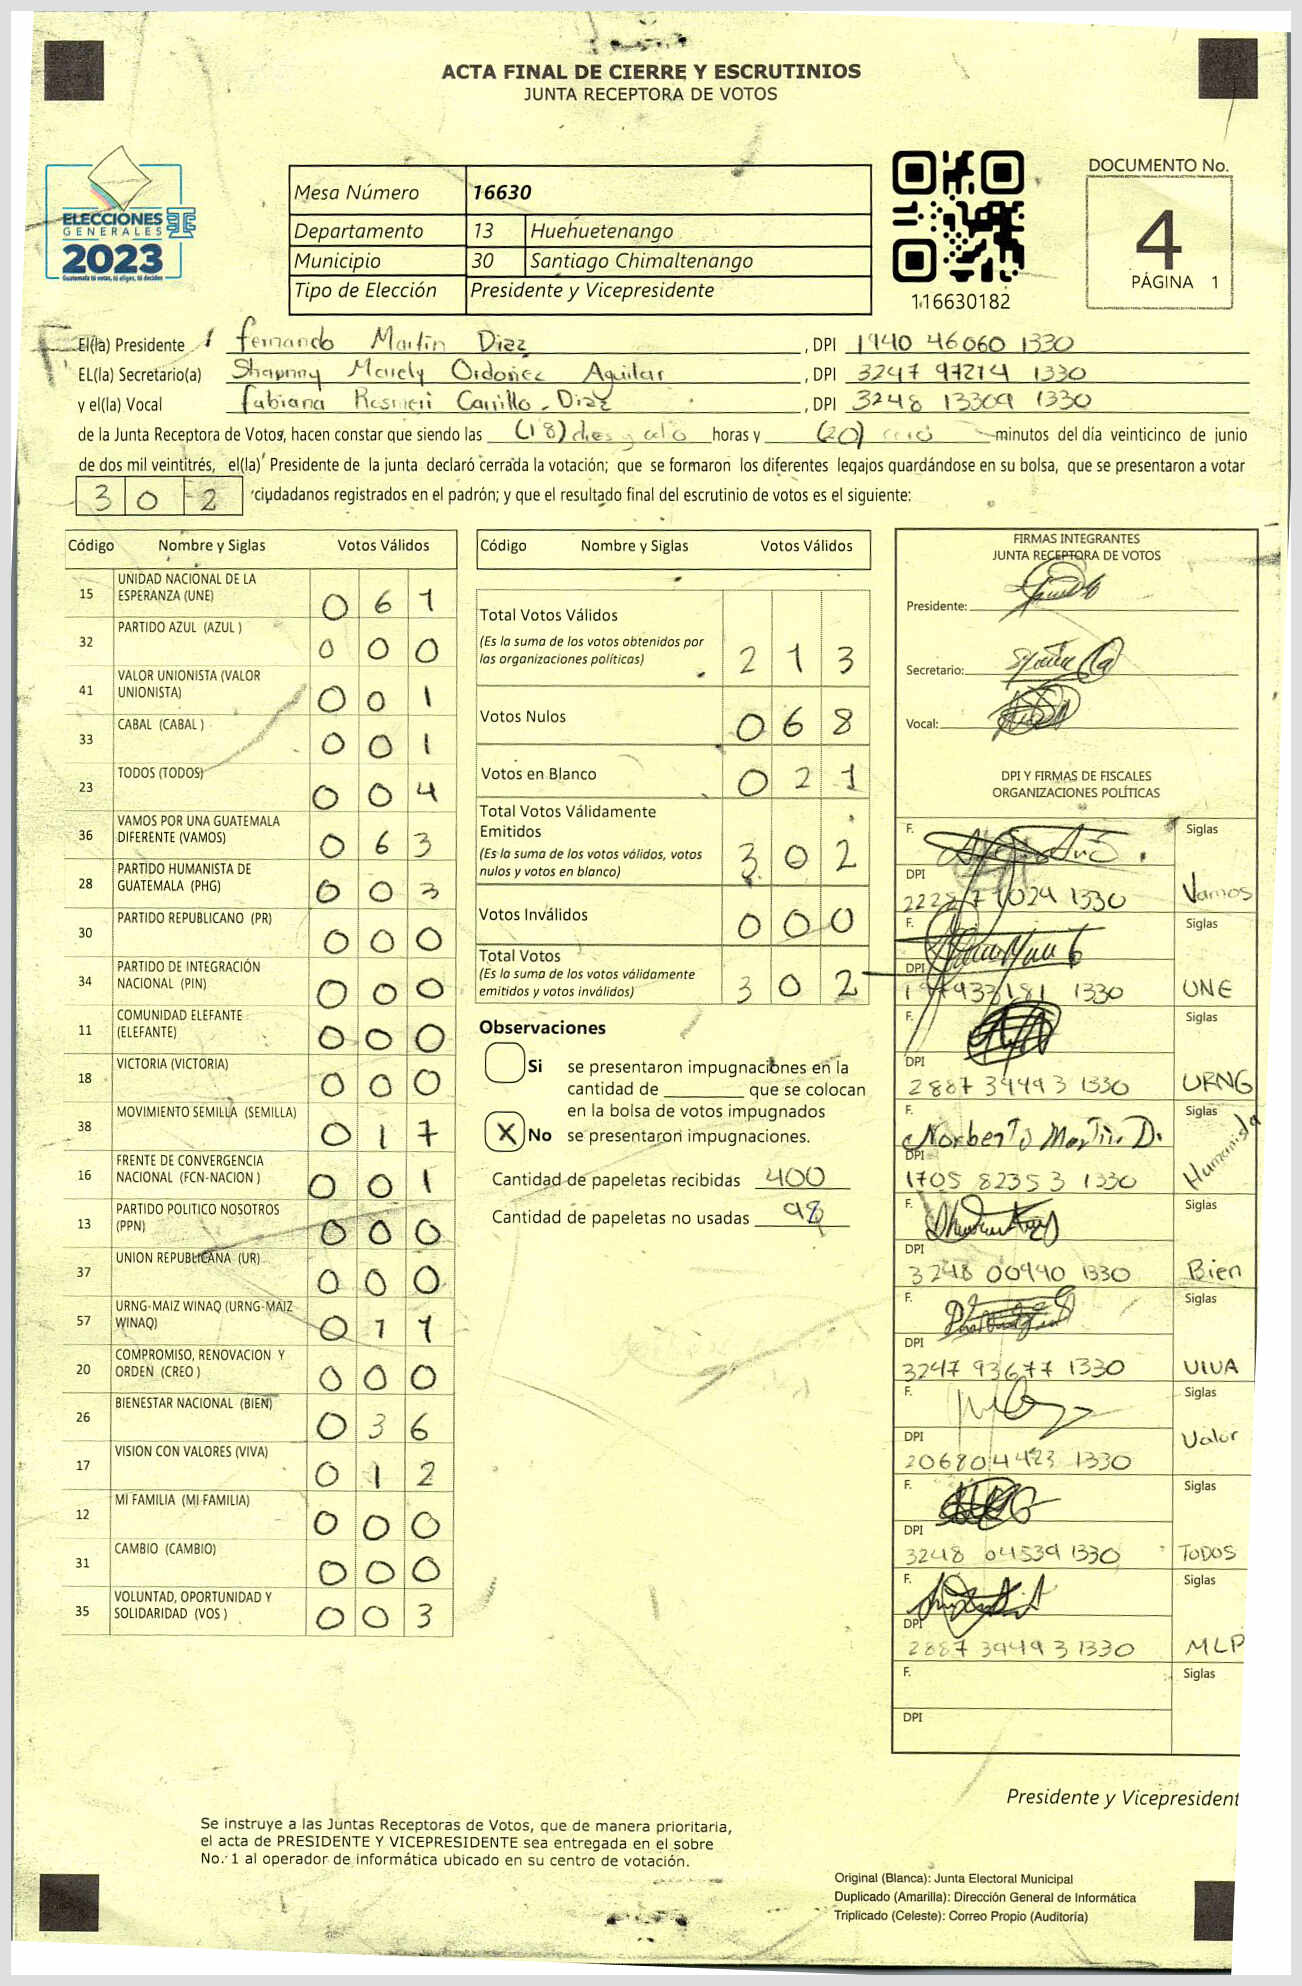 ACTA FINAL DE CIERRE Y ESCRUTINIOS
JUNTA RECEPTORA DE VOTOS
ELECCIONES
GENERALES
2023
Guatemala tú votas, tú eliges, tú decides
Mesa Número 16630
Departamento 13 Huehuetenango
Municipio 30 Santiago Chimaltenango
Tipo de Elección Presidente y Vicepresidente
1.16630182
DOCUMENTO No.
4
PÁGINA 1
El(la) Presidente Fernando Martin Diaz, DPI 1940 46060 1330
EL(la) Secretario(a) Marely Ordoñez Aguilar, DPI 3247 97214 1330
y el(la) Vocal Fabiana Carrillo Diaz, DPI 3248 13309 1330
de la Junta Receptora de Votos, hacen constar que siendo las (18) horas y (20) minutos del día veinticinco de junio
de dos mil veintitrés, el(la) Presidente de la junta declaró cerrada la votación; que se formaron los diferentes legajos guardándose en su bolsa, que se presentaron a votar
3 0 2 ciudadanos registrados en el padrón; y que el resultado final del escrutinio de votos es el siguiente:
Código Nombre y Siglas Votos Válidos
15 UNIDAD NACIONAL DE LA ESPERANZA (UNE) 0 6 1
32 PARTIDO AZUL (AZUL ) 0 0 0
41 VALOR UNIONISTA (VALOR UNIONISTA) 0 0 1
33 CABAL (CABAL ) 0 0 1
23 TODOS (TODOS) 0 0 4
36 VAMOS POR UNA GUATEMALA DIFERENTE (VAMOS) 0 6 3
28 PARTIDO HUMANISTA DE GUATEMALA (PHG) 0 0 3
30 PARTIDO REPUBLICANO (PR) 0 0 0
34 PARTIDO DE INTEGRACIÓN NACIONAL (PIN) 0 0 0
11 COMUNIDAD ELEFANTE (ELEFANTE) 0 0 0
18 VICTORIA (VICTORIA) 0 0 0
38 MOVIMIENTO SEMILLA (SEMILLA) 0 1 7
16 FRENTE DE CONVERGENCIA NACIONAL (FCN-NACION ) 0 0 1
13 PARTIDO POLITICO NOSOTROS (PPN) 0 0 0
37 UNION REPUBLICANA (UR) 0 0 0
57 URNG-MAIZ WINAQ (URNG-MAIZ WINAQ) 0 1 1
20 COMPROMISO, RENOVACION Y ORDEN (CREO ) 0 0 0
26 BIENESTAR NACIONAL (BIEN) 0 3 6
17 VISION CON VALORES (VIVA) 0 1 2
12 MI FAMILIA (MI FAMILIA) 0 0 0
31 CAMBIO (CAMBIO) 0 0 0
35 VOLUNTAD, OPORTUNIDAD Y SOLIDARIDAD (VOS ) 0 0 3
Código Nombre y Siglas Votos Válidos
Total Votos Válidos
(Es la suma de los votos obtenidos por
las organizaciones políticas) 2 1 3
Votos Nulos 0 6 8
Votos en Blanco 0 2 1
Total Votos Válidamente
Emitidos
(Es la suma de los votos válidos, votos
nulos y votos en blanco) 3 0 2
Votos Inválidos 0 0 0
Total Votos
(Es la suma de los votos válidamente
emitidos y votos inválidos) 3 0 2
Observaciones
Si se presentaron impugnaciones en la
cantidad de ________ que se colocan
en la bolsa de votos impugnados
X No se presentaron impugnaciones.
Cantidad de papeletas recibidas 400
Cantidad de papeletas no usadas 98
FIRMAS INTEGRANTES
JUNTA RECEPTORA DE VOTOS
Presidente:
Secretario:
Vocal:
DPI Y FIRMAS DE FISCALES
ORGANIZACIONES POLÍTICAS
F. Siglas
DPI 1330 Vamos
F. Siglas
DPI 1330 UNE
F. Siglas
DPI 2887 39493 1330 URNG
F. Norberto Martin D. Siglas
DPI 1705 82353 1330 Humanista
F. Siglas
DPI 3248 00940 1330 Bien
F. Siglas
DPI 3247 93677 1330 VIVA
F. Siglas
DPI 206804423 1330 Valor
F. Siglas
DPI 3248 04539 1330 TODOS
F. Siglas
DPI 2887 39493 1330 MLP
F. Siglas
DPI
Presidente y Vicepresident
Se instruye a las Juntas Receptoras de Votos, que de manera prioritaria,
el acta de PRESIDENTE Y VICEPRESIDENTE sea entregada en el sobre
No. 1 al operador de informática ubicado en su centro de votación.
Original (Blanca): Junta Electoral Municipal
Duplicado (Amarilla): Dirección General de Informática
Triplicado (Celeste): Correo Propio (Auditoría)